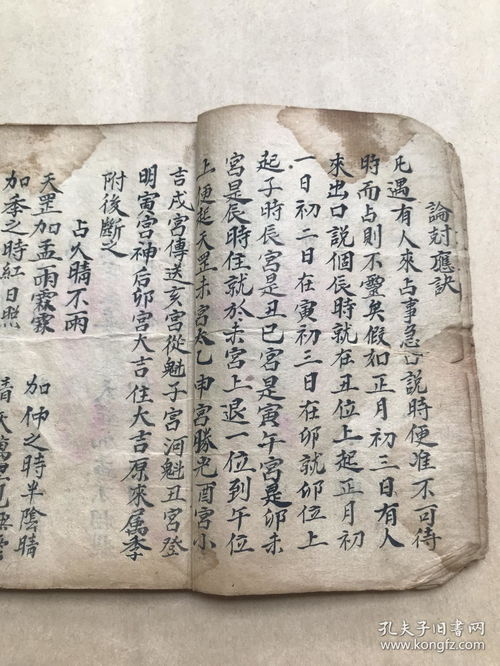 論尅應訣
凡遇有人來占事急口說時便准不可待
時而占則不靈矣假如正月初三日有人
來出口說個辰時就在丑位上起正月初
一日初二日在寅初三日在卯就卯位上
起子時辰宮是丑巳宮是寅午宮是卯未
宮是辰時住就於未宮上退一位到午位
上便起天罡未宮太乙申宮勝光酉宮小
吉戌宮傳送亥宮從魁子宮河魁丑宮登
明寅宮神后卯宮大吉住大吉原來属季
附後斷之
占久晴不雨
天罡加孟雨霖霖
加季之時紅日照
加仲之時半陰晴
晴天萬里
孔夫子旧书网
www.kongfz.com